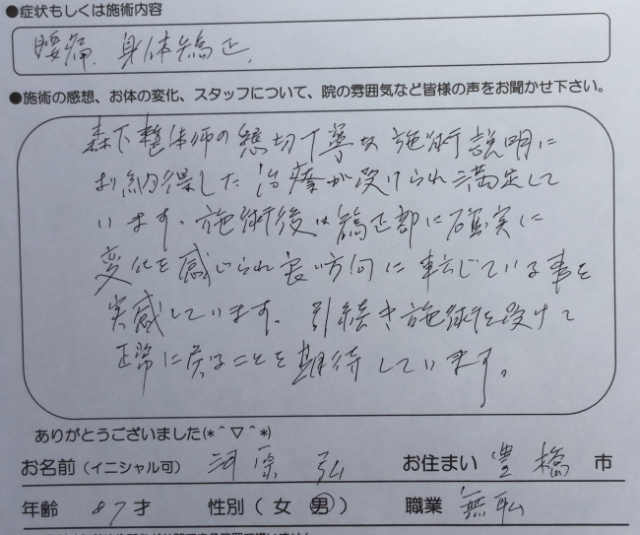 ●症状もしくは施術内容
腰痛、身体矯正
●施術の感想、お体の変化、スタッフについて、院の雰囲気など皆様の声をお聞かせ下さい。
森下整体師の懇切丁寧な施術説明に
より納得した治療が受けられ満足して
います。施術後は矯正部に確実に
変化を感じられ良い方向に転じている事を
実感しています。引続き施術を受けて
正常に戻ることを期待しています。
ありがとうございました(*^▽^*)
お名前(イニシャル可) 河原 弘 お住まい 豊橋 市
年齢 87才 性別(女 男) 職業 無職